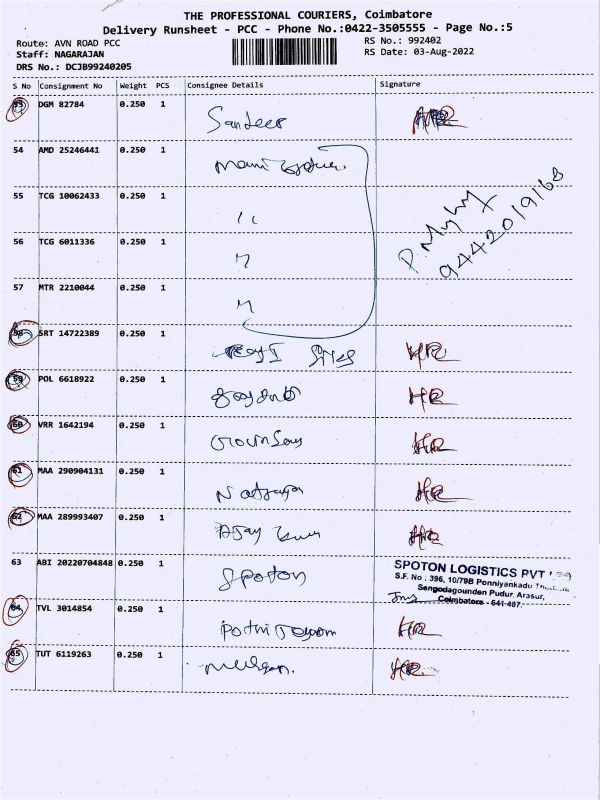 THE PROFESSIONAL COURIERS, Coimbatore
Delivery Runsheet - PCC - Phone No.:0422-3505555 - Page No.:5
Route: AVN ROAD PCC
RS No.: 992402
Staff: NAGARAJAN
RS Date: 03-Aug-2022
DRS No.: DCJB99240205
S No Consignment No Weight PCS Consignee Details Signature
53 DGM 82784 0.250 1 Sandeep HR
54 AMD 25246441 0.250 1 Mani
55 TCG 10062433 0.250 1 "
56 TCG 6011336 0.250 1 "
57 MTR 2210044 0.250 1 "
9442019168
58 SRT 14722389 0.250 1 HR
59 POL 6618922 0.250 1 HR
60 VRR 1642194 0.250 1 HR
61 MAA 290904131 0.250 1 HR
62 MAA 289993407 0.250 1 Ajay HR
63 ABI 20220704848 0.250 1 Spoton
SPOTON LOGISTICS PVT
S.F. No : 396, 10/79B Ponniyankadu
Sengodagounden Pudur, Arasur,
Coimbatore - 641-407.
64 TVL 3014854 0.250 1 HR
65 TUT 6119263 0.250 1 Murugan. HR